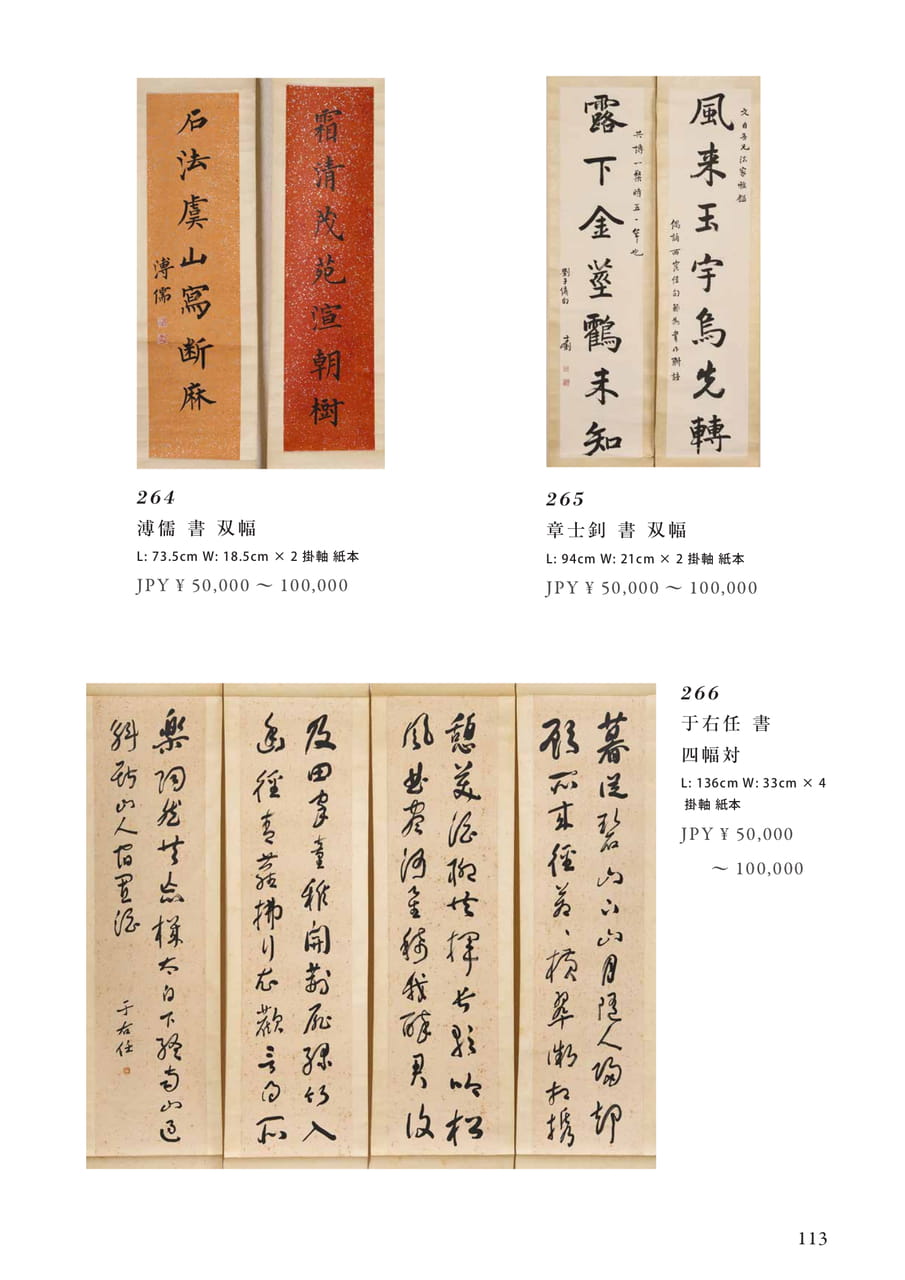 霜清茂苑渲朝樹
石法虞山寫断麻
溥儒
264
溥儒 書 双幅
L: 73.5cm W: 18.5cm × 2 掛軸 紙本
JPY ¥ 50,000 ～ 100,000
風来玉宇烏先轉
露下金莖鶴未知
265
章士釗 書 双幅
L: 94cm W: 21cm × 2 掛軸 紙本
JPY ¥ 50,000 ～ 100,000
暮從碧山下山月隨人歸却
顧所来徑蒼〻横翠微相携
憩美酒聊共揮長歌吟松
風曲盡河星稀我醉君復
及田家童稚開荊扉綠竹入
幽徑青蘿拂行衣歡言得所
樂陶然共忘機太白下終南山過
斛斯山人宿置酒
于右任
266
于右任 書
四幅対
L: 136cm W: 33cm × 4
掛軸 紙本
JPY ¥ 50,000
～ 100,000
113